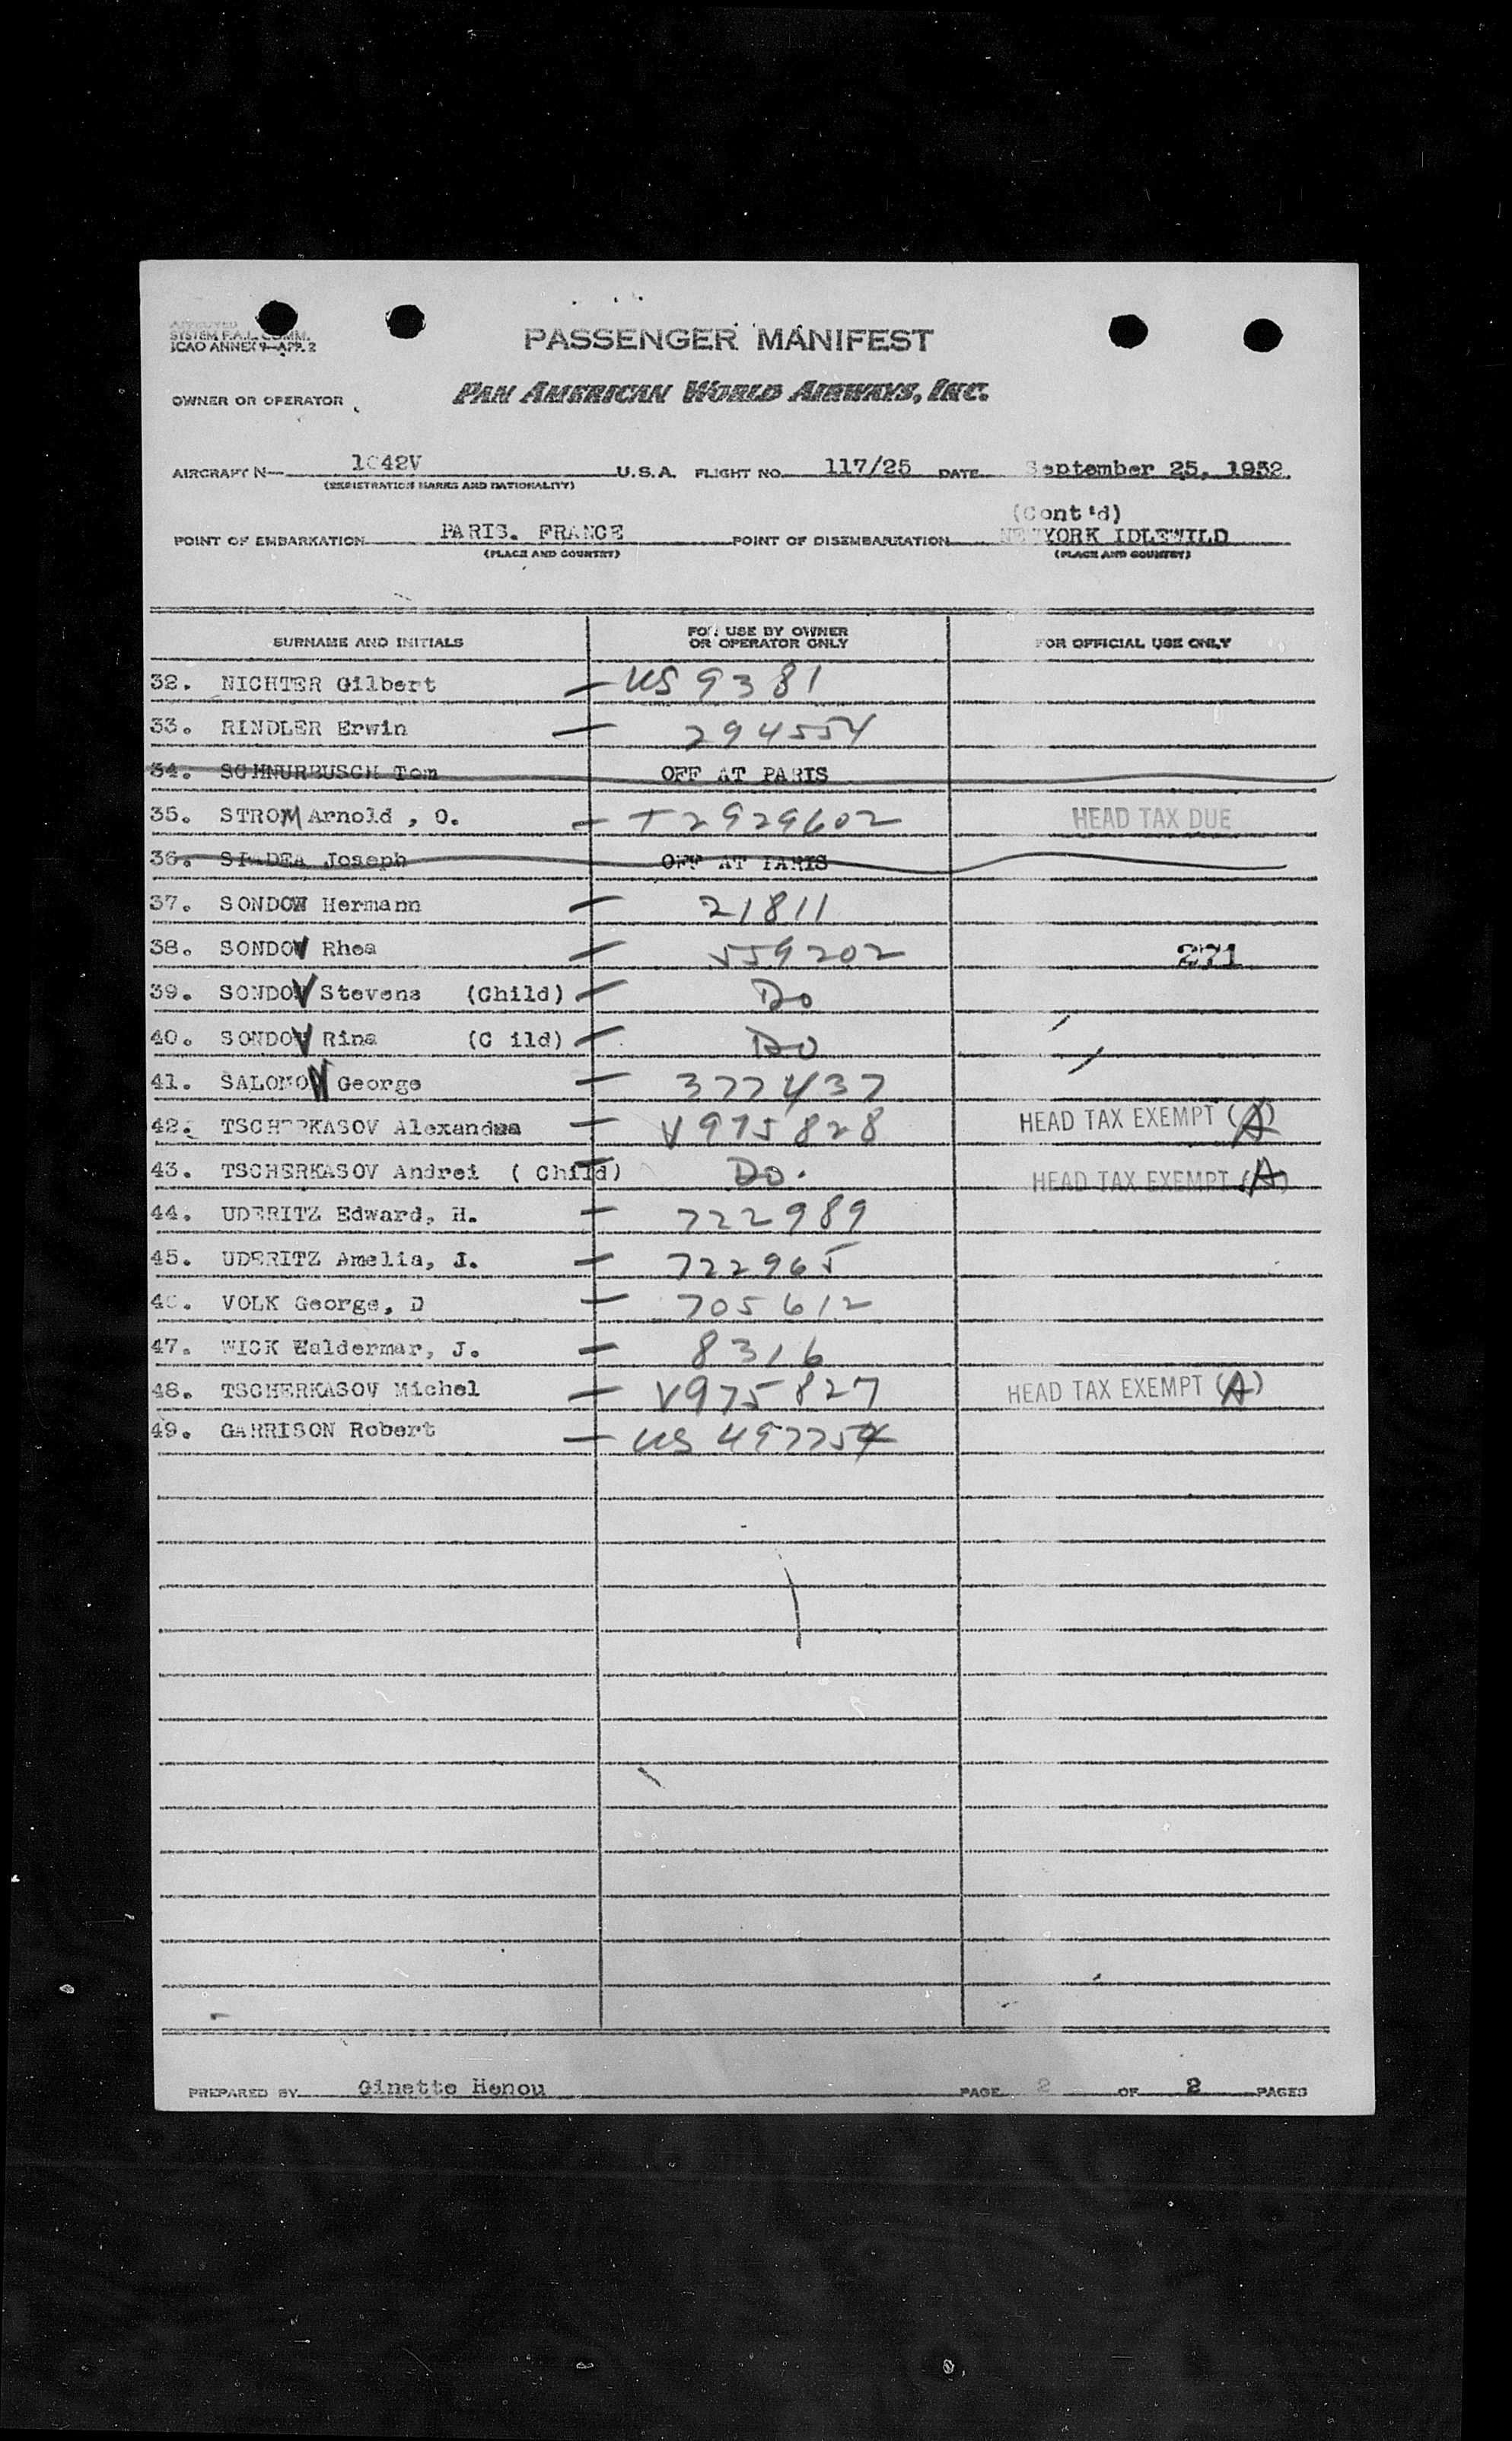 APPROVED
SYSTEM F.A.L. COMM.
ICAO ANNEX 9—APP. 2
PASSENGER MANIFEST
OWNER OR OPERATOR PAN AMERICAN WORLD AIRWAYS, INC.
AIRCRAFT N— 1042V U.S.A. FLIGHT NO. 117/25 DATE September 25, 1952.
(REGISTRATION MARKS AND NATIONALITY)
(Cont'd)
POINT OF EMBARKATION PARIS. FRANCE POINT OF DISEMBARKATION NEWYORK IDLEWILD
(PLACE AND COUNTRY) (PLACE AND COUNTRY)
SURNAME AND INITIALS FOR USE BY OWNER OR OPERATOR ONLY FOR OFFICIAL USE ONLY
32. NICHTER Gilbert — US 9381
33. RINDLER Erwin — 294554
34. SCHNURBUSCH Tom OFF AT PARIS
35. STROM Arnold , O. — T2929602 HEAD TAX DUE
36. Joseph OFF AT PARIS
37. SONDOW Hermann — 21811
38. SONDOV Rhea — 559202 271
39. SONDOV Stevens (Child) — Do
40. SONDOV Rina (C ild) — Do
41. SALOMON George — 377437
42. TSCHERKASOV Alexandra — V975828 HEAD TAX EXEMPT (A)
43. TSCHERKASOV Andrei ( Child) — Do. HEAD TAX EXEMPT (A)
44. UDERITZ Edward, H. — 722989
45. UDERITZ Amelia, J. — 722965
46. VOLK George, D — 705612
47. WICK Waldermar, J. — 8316
48. TSCHERKASOV Michel — V975827 HEAD TAX EXEMPT (A)
49. GARRISON Robert — US 497754
PREPARED BY Ginette Henou PAGE 2 OF 2 PAGES